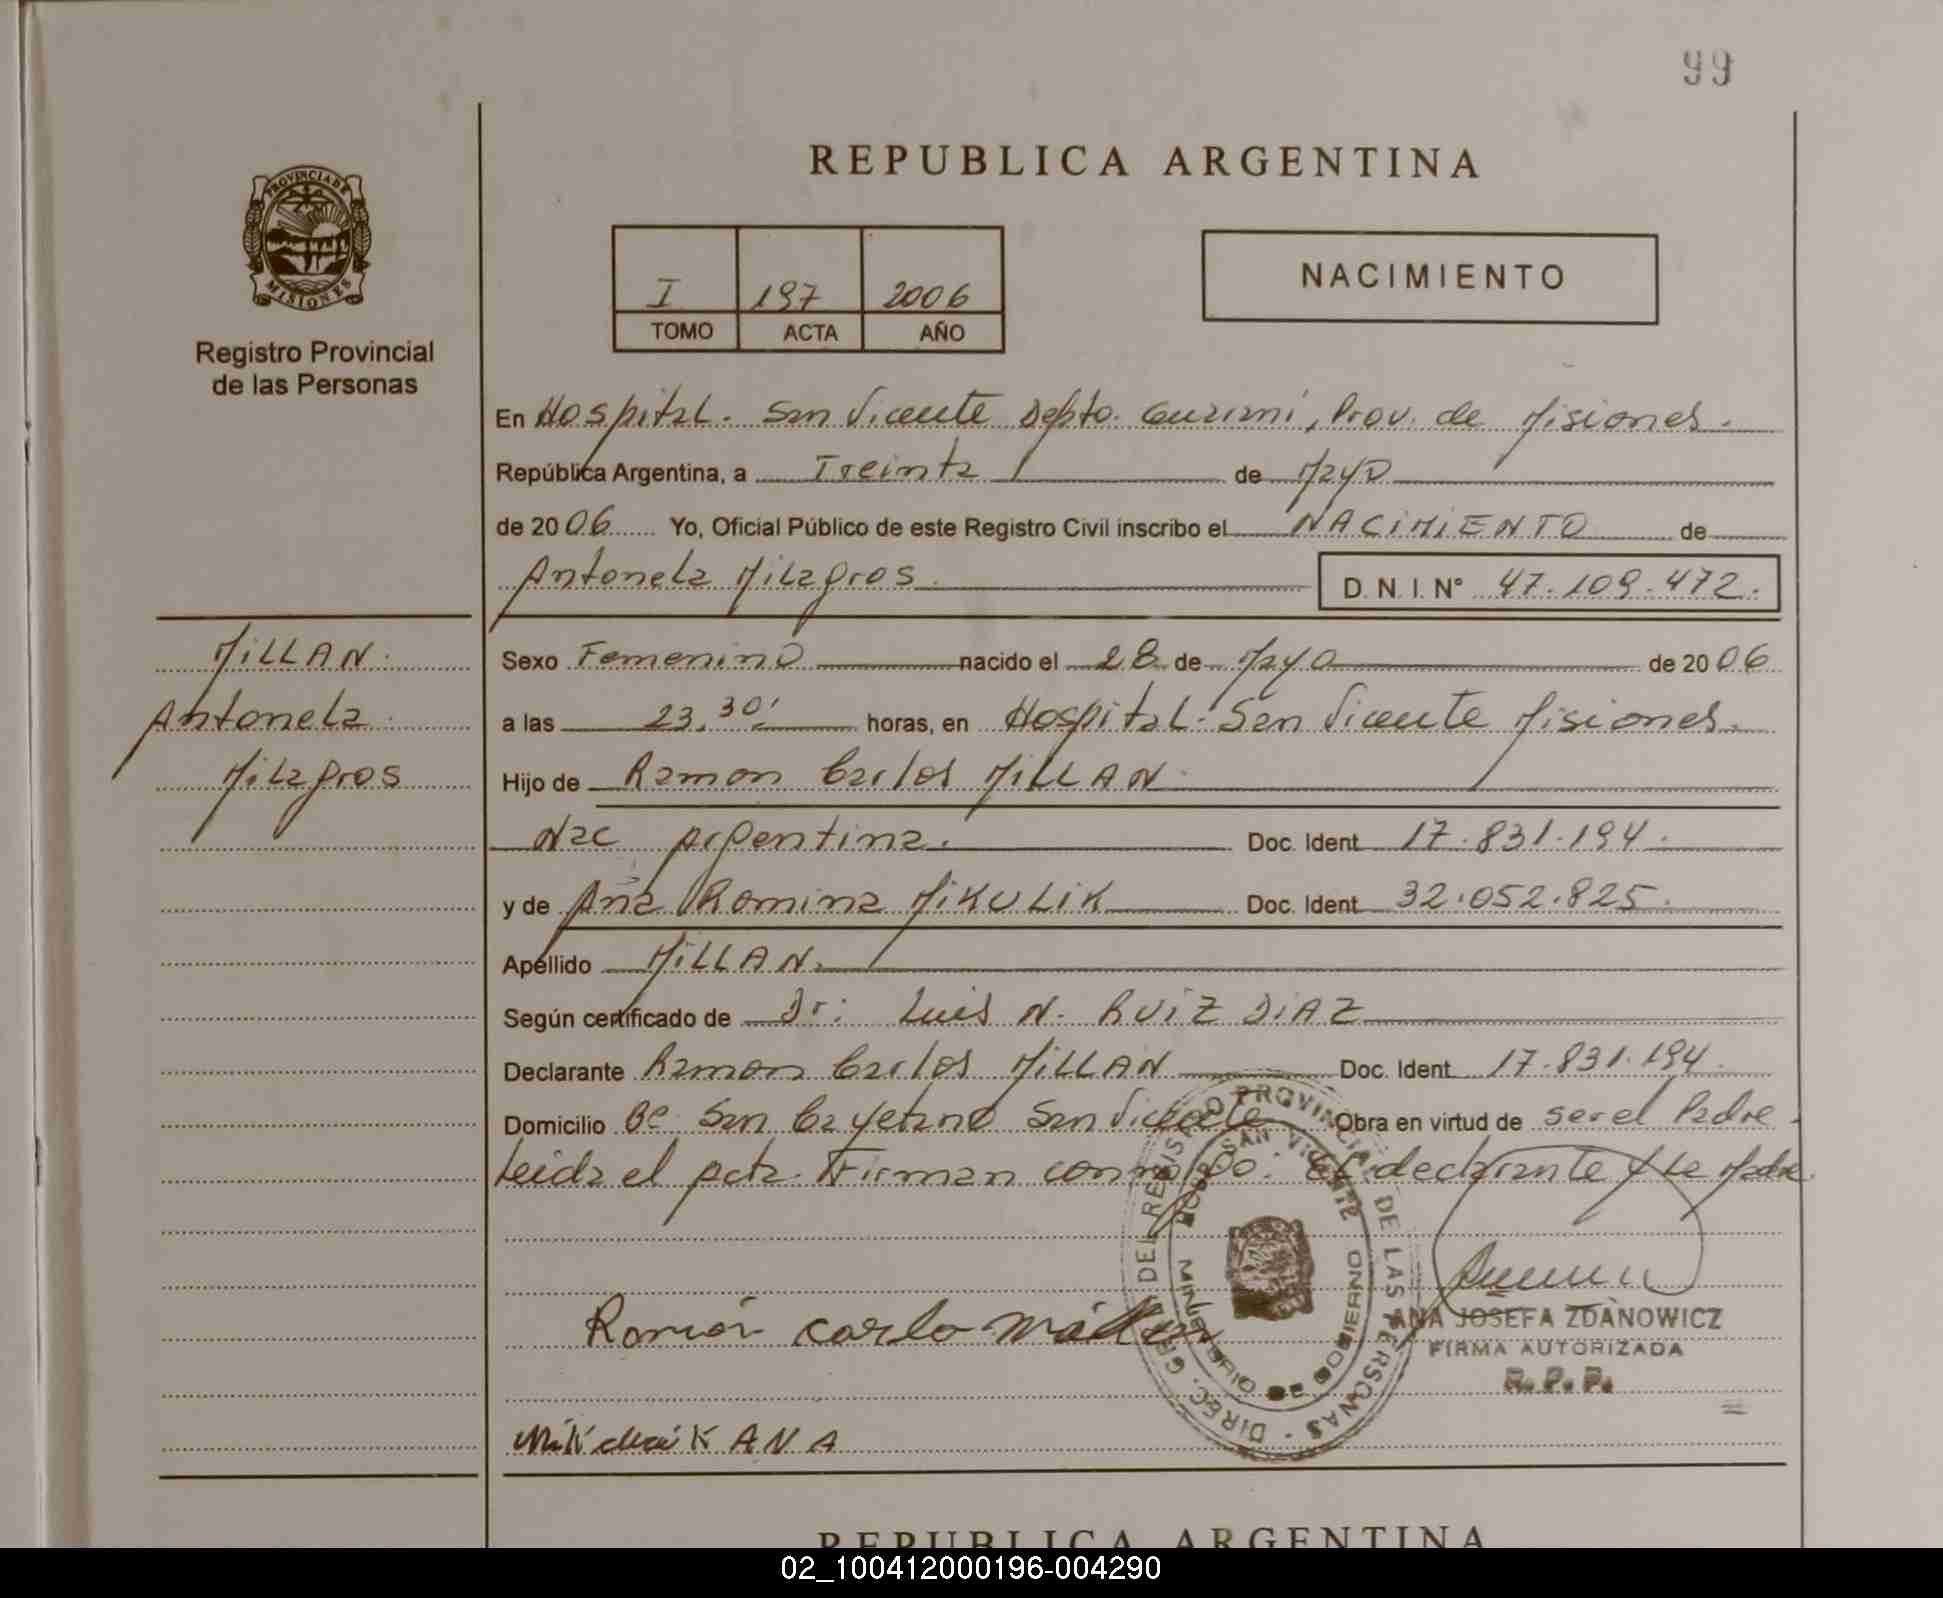 99
REPUBLICA ARGENTINA
PROVINCIA DE
MISIONES
Registro Provincial
de las Personas
I 197 2006
TOMO ACTA AÑO
NACIMIENTO
En Hospital. San Vicente Depto. Guarani, Prov. de Misiones.
República Argentina, a Treinta de Mayo
de 2006 Yo, Oficial Público de este Registro Civil inscribo el NACIMIENTO de
Antonela Milagros D. N. I. N° 47.109.472.
MILLAN.
Antonela
Milagros
Sexo Femenino nacido el 28 de Mayo de 2006
a las 23.30' horas, en Hospital. San Vicente Misiones.
Hijo de Ramon Carlos MILLAN.
Nac Argentina. Doc. Ident. 17.831.194.
y de Ana Romina MIKULIK Doc. Ident. 32.052.825.
Apellido MILLAN.
Según certificado de Dr: Luis N. RUIZ DIAZ
Declarante Ramon Carlos MILLAN Doc. Ident. 17.831.194.
Domicilio Bº San Cayetano San Vicente Obra en virtud de ser el Padre.
Leida el Acta. Firman conmigo: El declarante y la Madre.
DIREC. GRAL. DEL REGISTRO PROVINCIAL DE LAS PERSONAS
SAN VICENTE
MINISTERIO DE GOBIERNO
Ramón carlo
ANA JOSEFA ZDANOWICZ
FIRMA AUTORIZADA
R. P. P.
ANA
REPUBLICA ARGENTINA
02_100412000196-004290